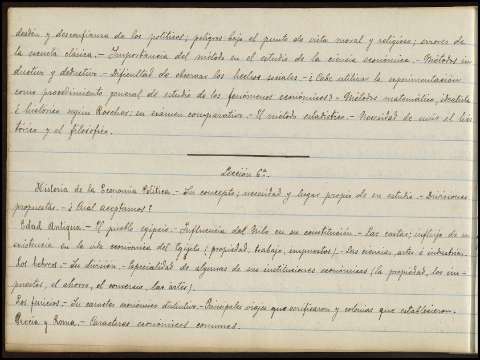 desdén y desconfianza de los políticos; peligros bajo el punto de vista moral y religioso; errores de
la escuela clásica.- Importancia del método en el estudio de la ciencia económica.- Métodos in-
ductivo y deductivo.- Dificultad de observar los hechos sociales.- ¿Cabe utilizar la experimentación
como procedimiento general de estudio de los fenómenos económicos?- Métodos matemático, idealista
é histórico según Roscher; su examen comparativo.- El método estadístico.- Necesidad de unir el his-
tórico y el filosófico.
Lección 6ª.
Historia de la Economía Política.- Su concepto; necesidad y lugar propio de su estudio.- Divisiones
propuestas.- ¿Cual aceptamos?
Edad Antigua.- El pueblo egipcio.- Influencia del Nilo en su constitución.- Las castas; influjo de su
existencia en la vida económica del Egipto (propiedad, trabajo, impuestos).- Las ciencias, artes é industrias.
Los hebreos.- Su división.- Especialidad de algunas de sus instituciones económicas (la propiedad, los im-
puestos, el ahorro, el comercio, las artes).
Los fenicios.- Su caracter económico distintivo.- Principales viajes que verificaron y colonias que establecieron.
Grecia y Roma.- Caracteres económicos comunes.